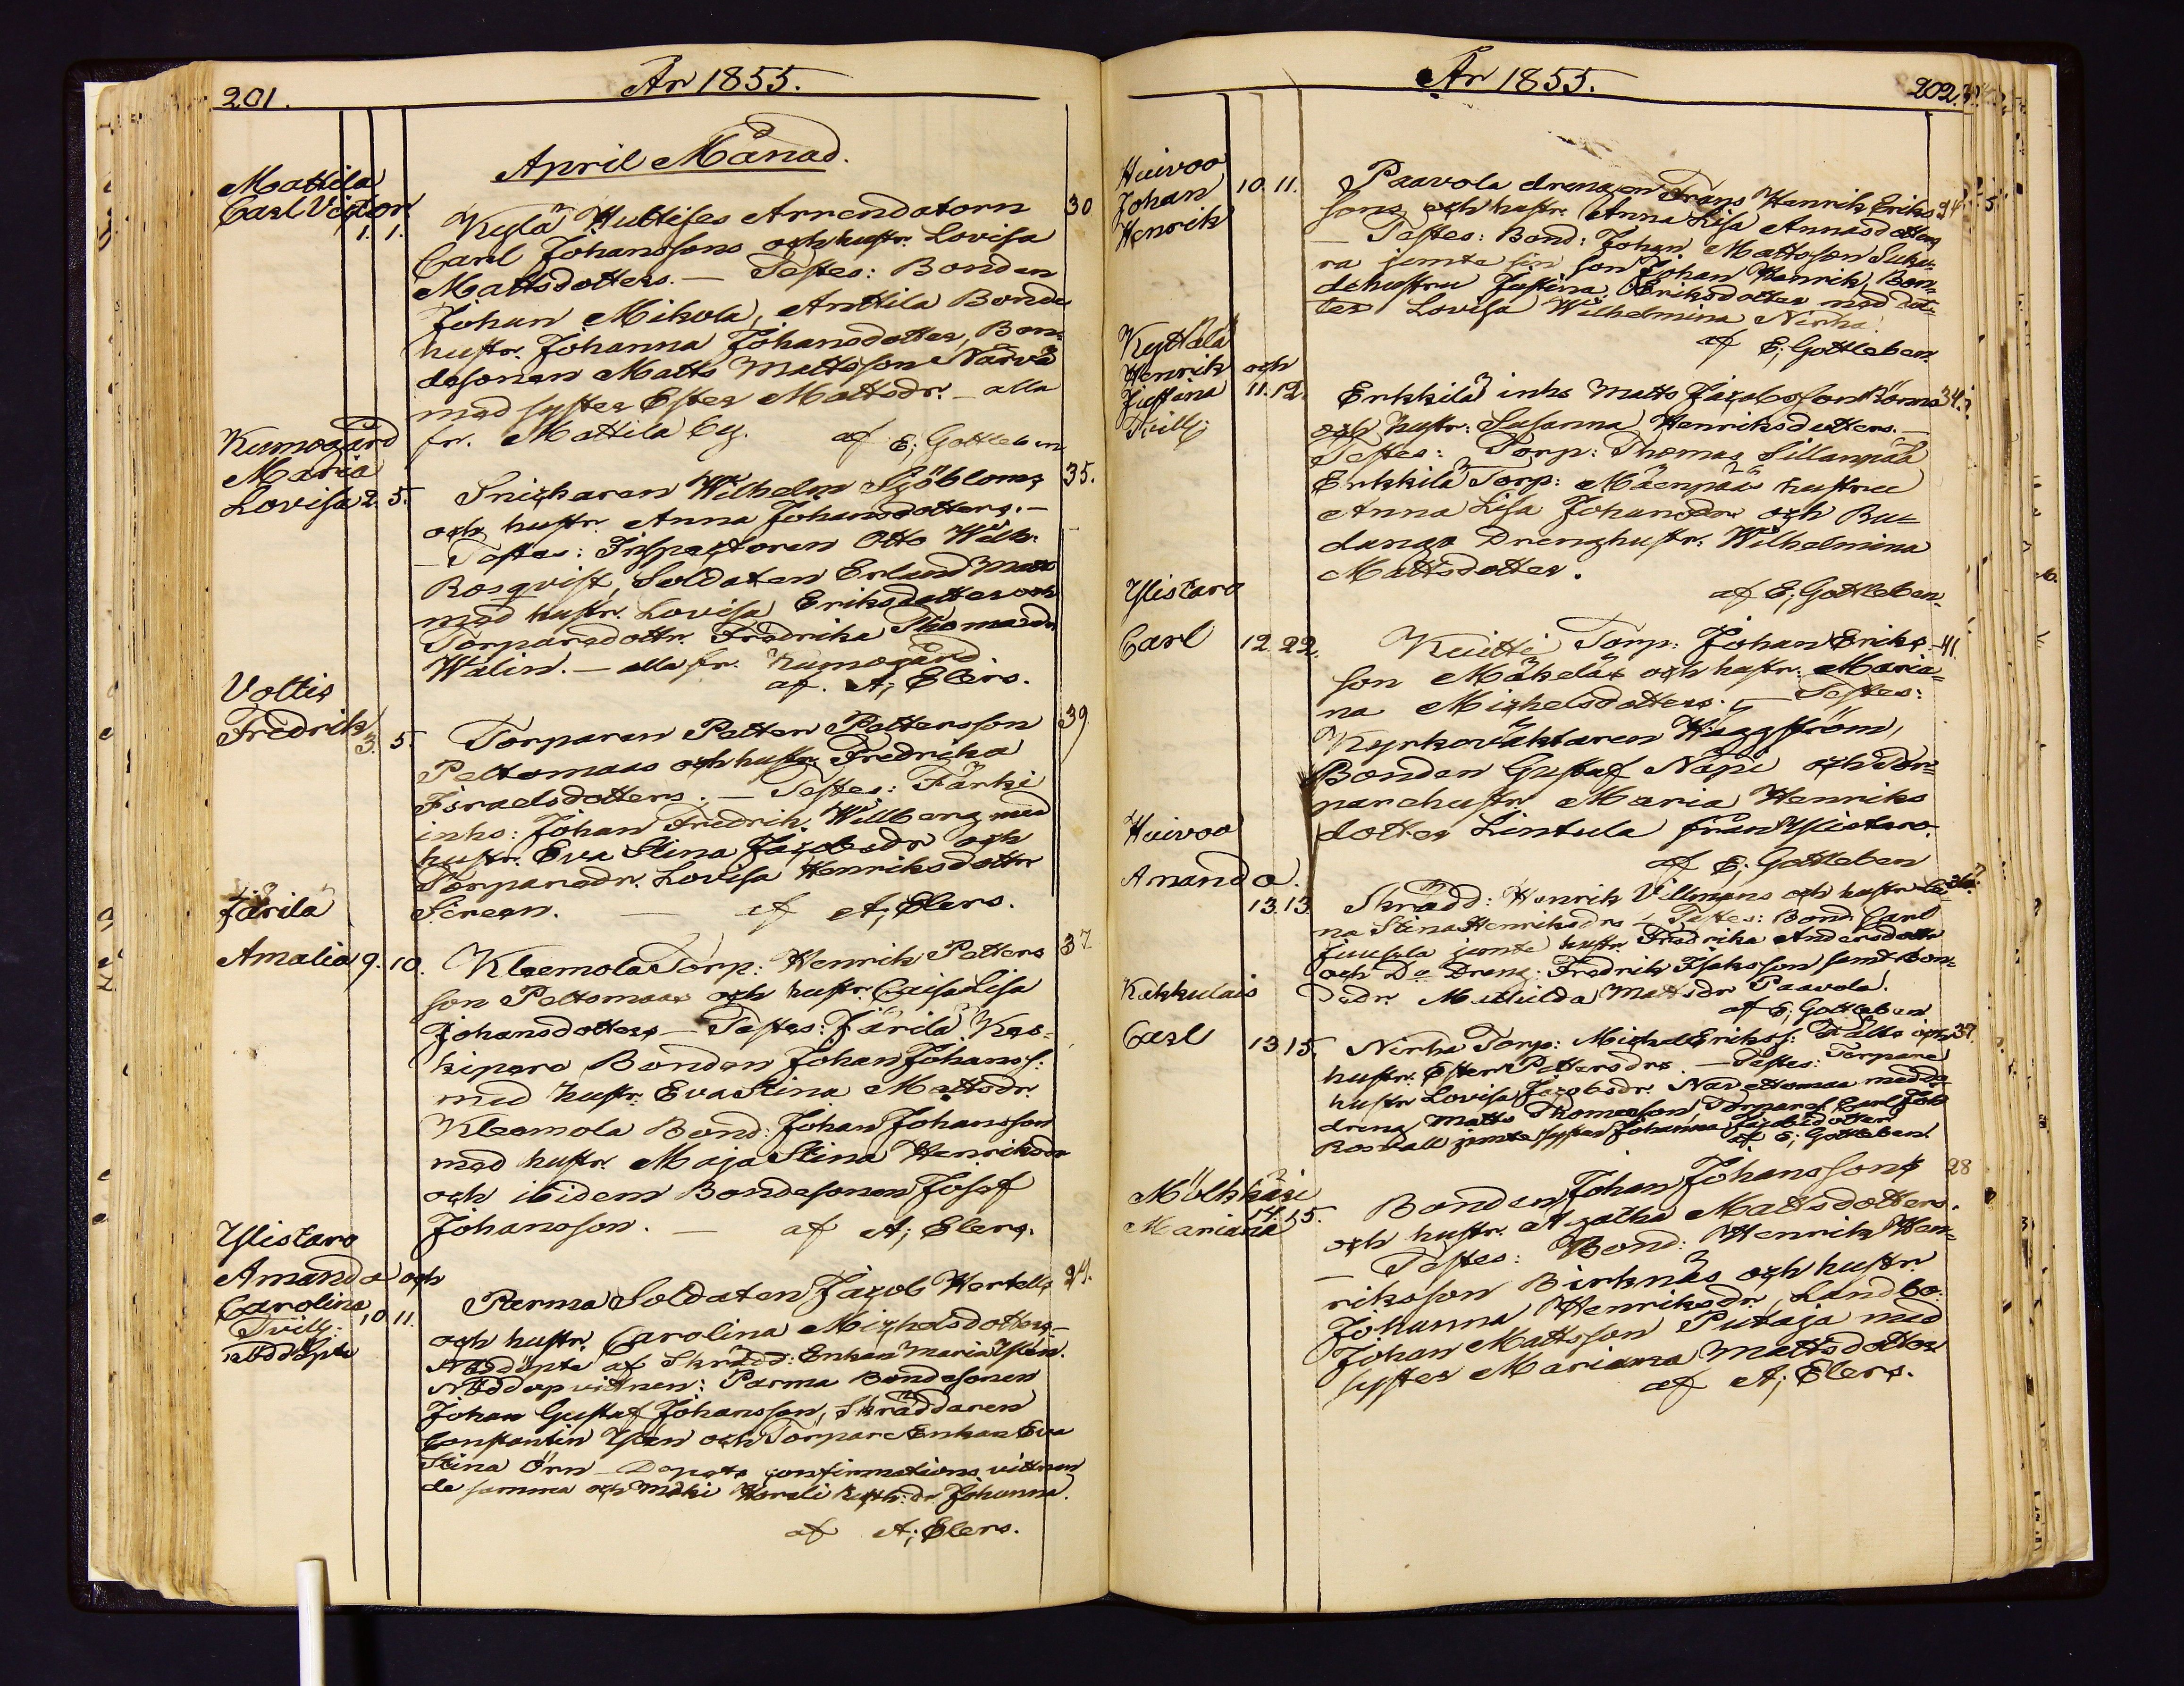 201.
År 1855.
April Månad.
Mattila
Carl Victor
1. 1.
Kylä Hultises Arrendatorn
30
Carl Johanssons och hustr. Lovisa
Mattsdotters. — Testes: Bonden
Johan Mikola, Anttila Bonde
hustr. Johanna Johansdotter, Bon-
desonen Matts Mattsson Narva
med syster Ester Mattsdr. — alla
fr. Mattila by. af E; Gottleben
Kumogård
Maria
Lovisa 2. 5.
Snickaren Wilhelm Sjöbloms
35.
och hustr. Anna Johansdotters. —
— Testes: Inspectoren Otto Wilh.
Rosqvist, Soldaten Erland Matts
med hustr. Lovisa Eriksdotter och
Torparedottr. Fredrika Thomasdr
Wälin. — alla fr. Kumogård
af. A; Elers.
Voltis
Fredrik
3. 5.
Torparen Petter Pettersson
39
Peltomaas och hustr. Fredrika
Israelsdotters. — Testes: Färki
inhs: Johan Fredrik Willberg med
hustr. Eva Stina Jacobsdr och
Torparedr. Lovisa Henriksdottr
Sirean. — af A; Elers.
Järilä
Amalia 9. 10.
Kleemola Torp: Henrik Petters
37
son Peltomaas och hustr. Caisa Lisa
Johansdotters — Testes: Järilä Kes-
kipere Bonden Johan Johanss:
med hustr: Eva Stina Mattsdr.
Kleemola Bond: Johan Johansson
med hustr. Maja Stina Henriksdr
och ibidem Bondesonen Josef
Johansson. — af A; Elers.
Ylistaro
Amanda och
Carolina
10 11.
Tvill.
Nöddöpte
Perma Soldaten Jacob Wertells
24.
och hustr. Carolina Michelsdotters —
Nöddöpte af Skrädd: Enkan Maria Ylén.
Nöddopvittnen: Parma Bondesonen
Johan Gustaf Johansson, Skräddaren
Constantin Ylén och Torpare Enkan Eva
Stina Örn — Dopets confirmations vittnen
de samma och Mäki Harali Johanna.
af A; Elers.
År 1855.
202.
Huivoo
Johan
Henrik
10. 11.
Paavola drengen Frans Henrik Eriks
24.
sons och hustr. Anna Lisa Annasdotters
— Testes: Bond: Johan Mattsson Suku-
ra jemte sin son Johan Henrik, Bon-
dehustru Justina Eriksdotter med dot-
ter Lovisa Wilhelmina Nirha.
af E; Gottleben.
Kyttälä
Henrik och
Justina 11. 12.
Tvill:
Erkkilä inhs Matts Jacobsson Röms
34.
och hustr: Susanna Henriksdotters. —
Testes: Torp: Thomas Sillanpää
Erkkilä Torp: Mäenpää hustru
Anna Lisa Johansdr och Ru-
danga Drenghustr. Wilhelmina
Mattsdotter.
af E; Gottleben.
Ylistaro
Carl 12. 22.
Kuitti Torp: Johan Eriks
41.
son Mäkeläs och hustr. Maria-
na Michelsdotters. — Testes:
Kyrkoväktaren Häggström,
Bonden Gustaf Näpi och Tor-
parehustr. Maria Henriks
dotter Lintula från Ylistaro.
af E; Gottleben
Huivoo
Amanda.
13. 13.
Skrädd: Henrik Villmans och hustr
36.
na Stina Henriksdrs — Testes: Bond. Carl
Juusela jemte hustr. Fredrika Andersdottr
och Do Dreng: Fredrik Isaksson samt Bon-
dedr. Mathilda Mattsdr Paavola.
af E; Gottleben
Kakkulais
Carl 13 15.
Nirha Torp: Michel Erikss: Fälts och
37.
hustr. Ester Pettersdrs. — Testes: Torpare
hustr Lovisa Jacobsdr. Navettomaa med
dreng Matts Thomasson, Carl Joh
Rosvall jemte syster Johanna Jacobsdotter
af E; Gottleben.
Mölkkäri
14. 15.
Mariana
Bonden Johan Johanssons
28
och hustr. Agatha Mattsdotters.
— Testes: Bond: Henrik Hen-
riksson Birknäs och hustr.
Johanna Henriksdr, Landbo.
Johan Mattsson Putaja med
syster Mariana Mattsdotter
af A; Elers.